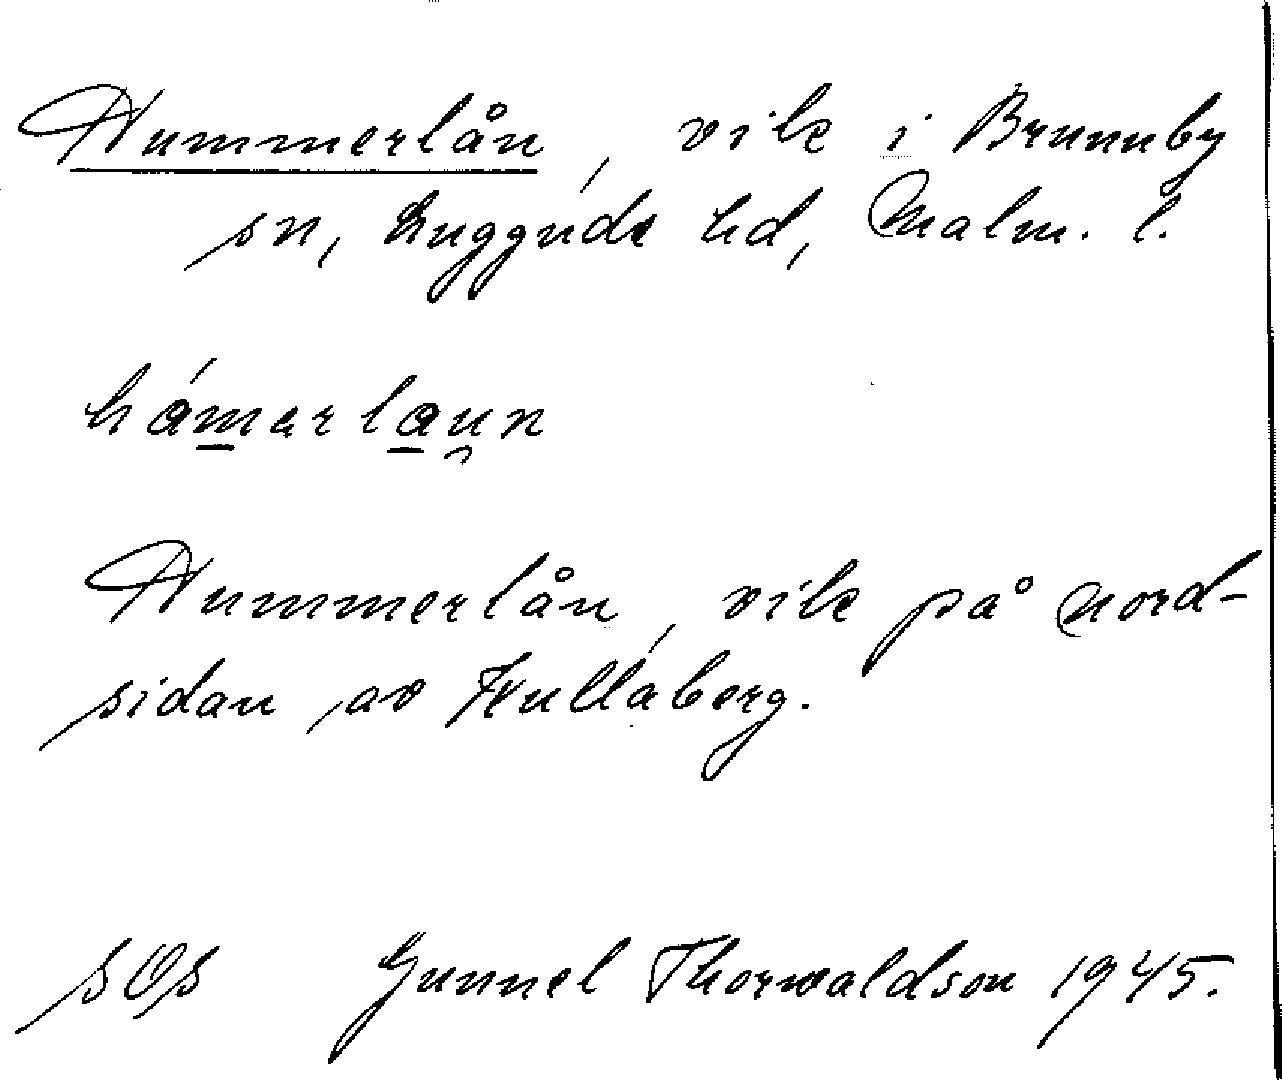 Hummerlån, vik i Brunnby
sn, Luggude hd, Malm. l.
hámarlaun
Hummerlån, vik på nord-
sidan av Kullaberg.
SOS Gunnel Thorwaldson 1945.